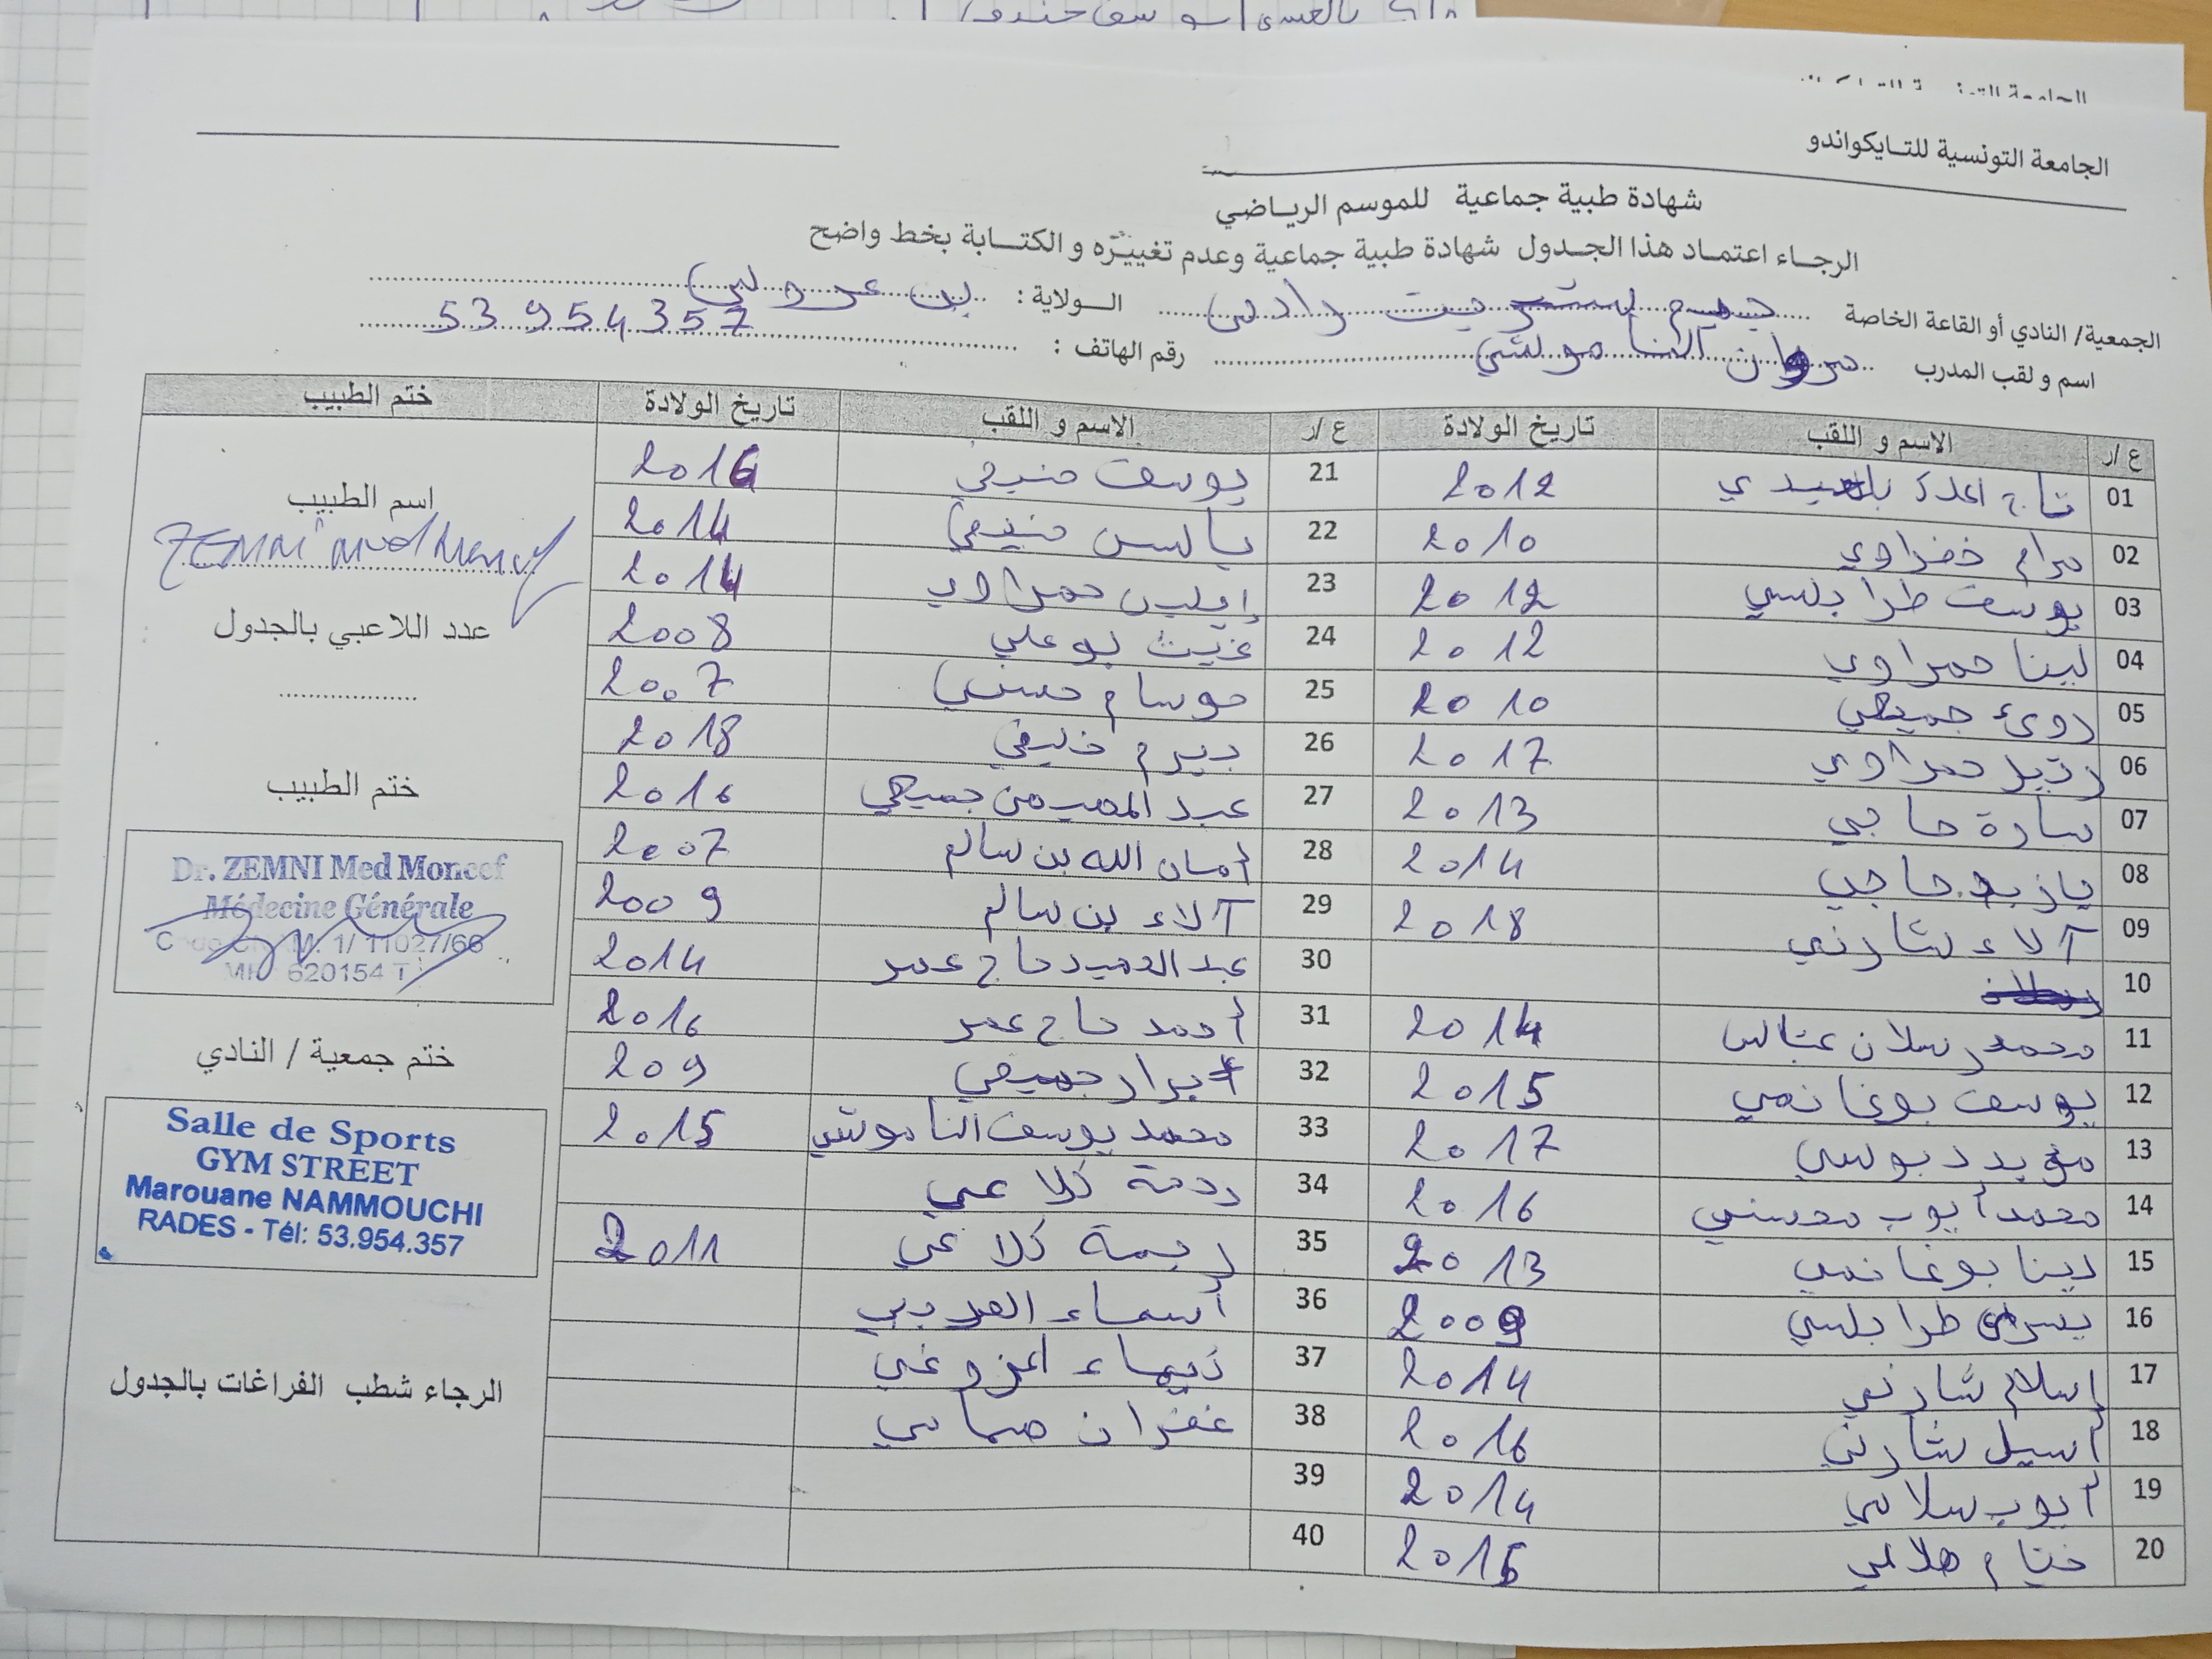 الجامعة التونسية للتـايكواندو
شهادة طبية جماعية للموسم الرياضي
الرجـاء اعتمـاد هذا الجـدول شهادة طبية جماعية وعدم تغييـره و الكتـابة بخط واضح
الجمعية/ النادي أو القاعة الخاصة جيم ستريت رادس الـولاية : بن عروس
اسم و لقب المدرب مروان الناموشي رقم الهاتف : 53 954 357
ع /ر الاسم و اللقب تاريخ الولادة ع /ر الاسم و اللقب تاريخ الولادة ختم الطبيب
01 2012 21 يوسف 2016
02 مرام خضراوي 2010 22 2014
03 يوسف طرابلسي 2012 23 إيلين حمراوي 2014
04 لينا حمراوي 2012 24 غيث بوعلي 2008
05 رؤى جميعي 2010 25 2007
06 رتيل حمراوي 2017 26 بيرم خليفي 2018
07 سارة حاجي 2013 27 عبد المهيمن جميعي 2016
08 يازيد حاجي 2014 28 أمان الله بن سالم 2007
09 آلاء شارني 2018 29 آلاء بن سالم 2009
10 30 عبد الحميد حاج عمر 2014
11 محمد رسلان عباس 2014 31 أحمد حاج عمر 2016
12 يوسف بوغانمي 2015 32 أبرار جميعي 209
13 مؤيد دبوسي 2017 33 محمد يوسف الناموشي 2015
14 محمد أيوب محسني 2016 34 رحمة كلاعي
15 لينا بوغانمي 2013 35 ريمة كلاعي 2011
16 يسرى طرابلسي 2009 36 أسماء العريبي
17 إسلام شارني 2014 37
18 أسيل شارني 2016 38 غفران
19 أيوب سلامي 2014 39
20 2015 40
اسم الطبيب
ZEMNI Med Moncef
عدد اللاعبي بالجدول
ختم الطبيب
Dr. ZEMNI Med Moncef
Médecine Générale
1/ 11027/66
620154 T
ختم جمعية / النادي
Salle de Sports
GYM STREET
Marouane NAMMOUCHI
RADES - Tél: 53.954.357
الرجاء شطب الفراغات بالجدول